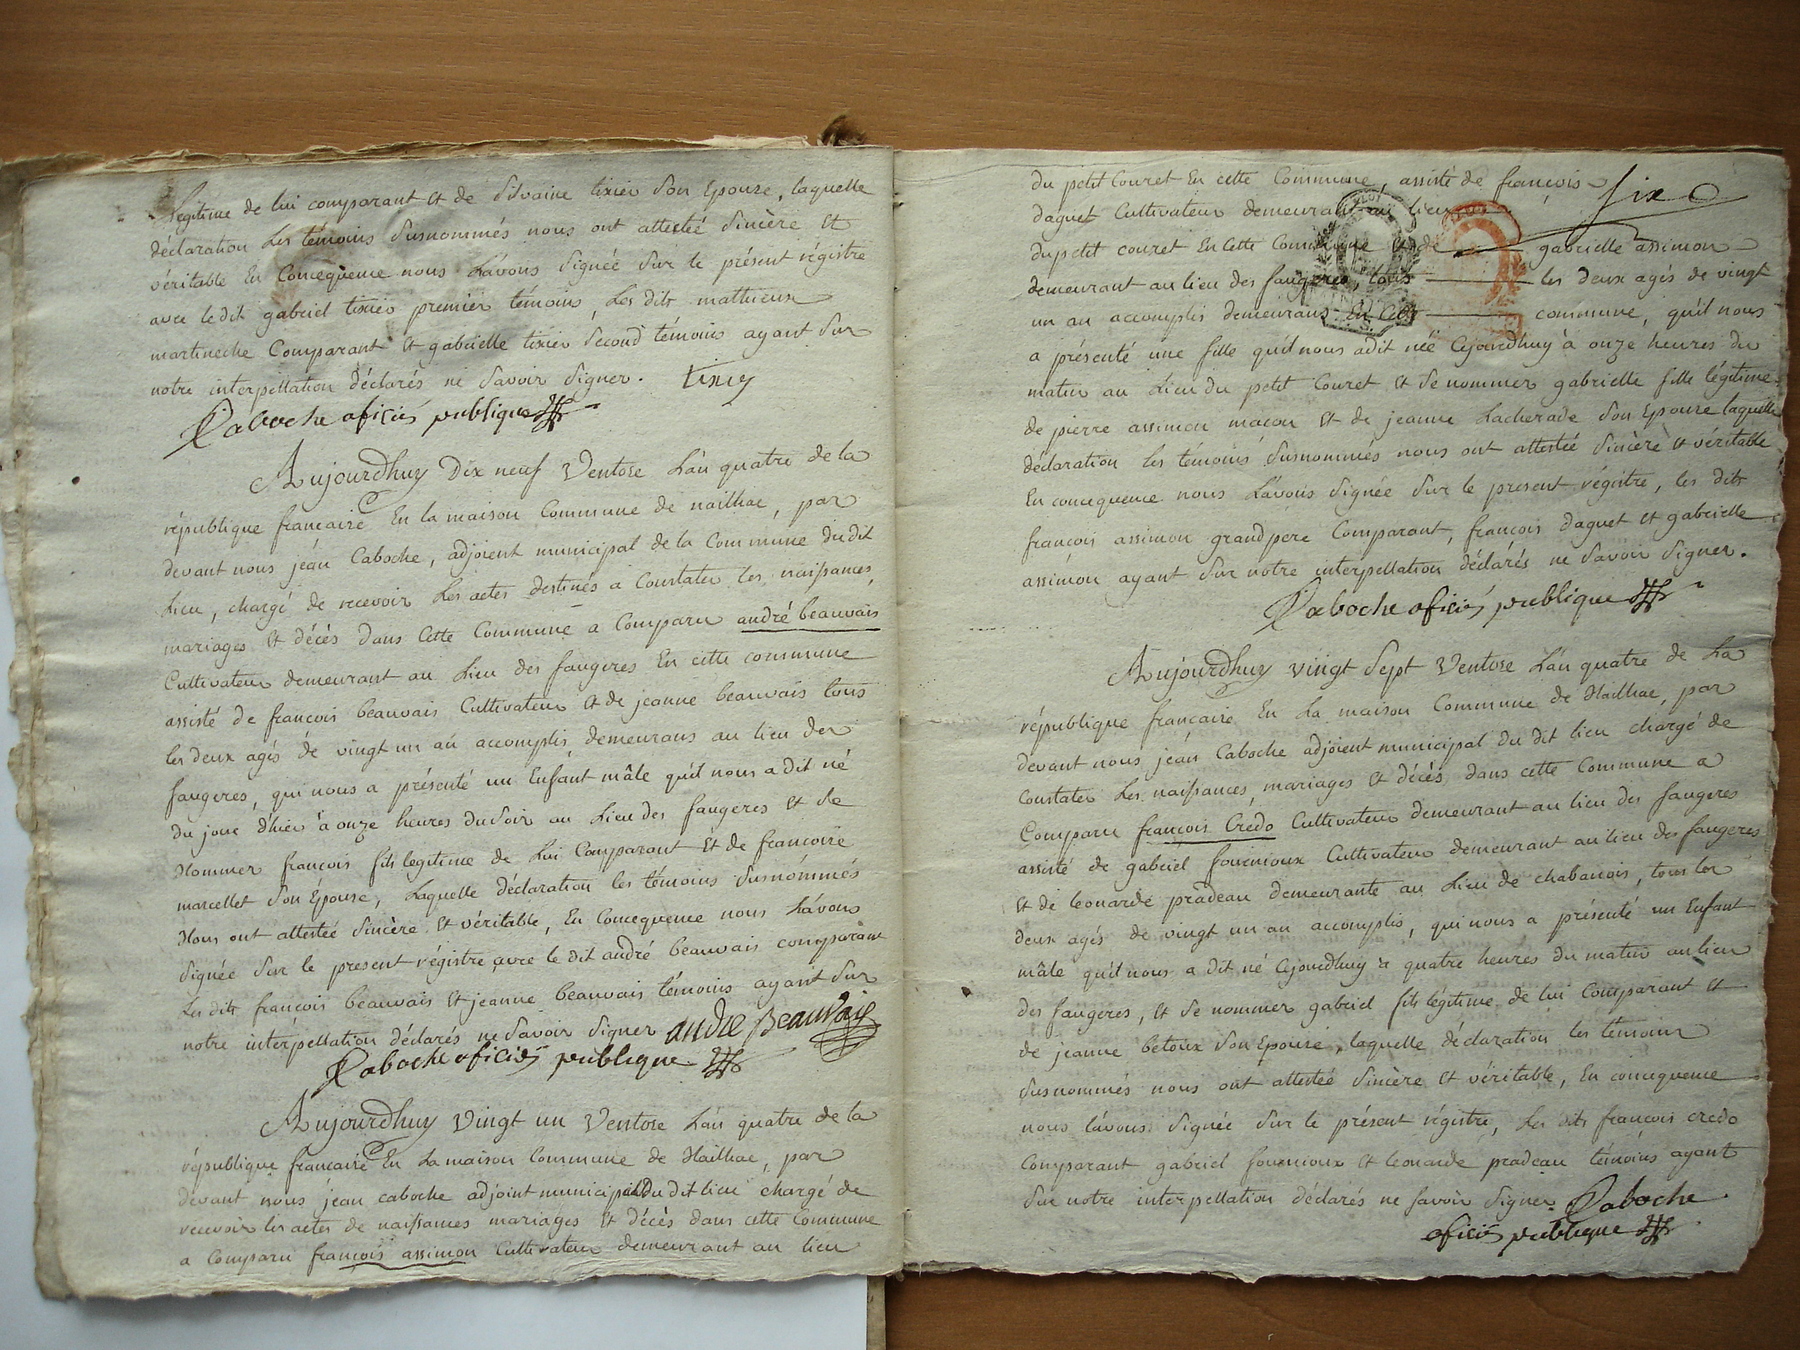 Légitime de lui comparant et de Silvaine tixier son Epouse, laquelle
déclaration les témoins susnommés nous ont attestée sincère et
véritable En Concequence nous L'avons signée sur le présent régistre
avec le dit gabriel tixier premier témoins, Les dits mathieux
martineche Comparant et gabrielle tixier second témoins ayant sur
notre interpellation déclarés ne savoir signer. tixier
Caboche oficiés publique
Aujourdhuy Dix neuf Ventose L'an quatre de la
république francaise En la maison Commune de naillac, par
devant nous jean Caboche, adjoient municipal de la Commune dudit
Lieu, chargé de recevoir Les actes destinés a Constater les naissances,
mariages et décès dans Cette Commune a Comparu andré beauvais
Cultivateur demeurant au Lieu des faugeres En cette commune
assisté de francois beauvais Cultivateur et de jeanne beauvais tous
les deux agés de vingt un an accomplis demeurans au lieu des
faugeres, qui nous a présenté un Enfant mâle qu'il nous a dit né
du jour d'hier à onze heures du soir au Lieu des faugeres et se
Nommer francois fils legitime de Lui Comparant Et de francoise
marcellet son Épouse, Laquelle déclaration les témoins susnommés
Nous ont attestée sincère et véritable, En Concequence nous L'avons
signée sur le present régistre avec le dit andré beauvais comparant
Les dits francois beauvais et jeanne beauvais témoins ayant sur
notre interpellation déclarés ne savoir signer andre Beauvais
Caboche oficiés publique
Aujourdhuy Vingt un Ventose L'an quatre de la
république francaise En La maison Commune de Naillac, par
devant nous jean caboche adjoint municipal du dit lieu chargé de
recevoir les actes de naissances mariages et décès dans cette Commune
a Comparu francois assimon Cultivateur demeurant au lieu
du petit Couret En cette Commune, assisté de francois
six
daguet Cultivateur demeurant au lieu
du petit couret En Cette Commune et de gabrielle assimon
demeurant au lieu des faugeres, tous les deux agés de vingt
un an accomplis demeurans En Cette commune, qu'il nous
a présenté une fille qu'il nous a dit née Cejourdhuy à onze heures du
matin au Lieu du petit Couret et se nommer gabrielle fille légitime
de pierre assimon macon et de jeanne Lacherade son Epouse laquelle
déclaration les témoins susnommés nous ont attestée sincère et véritable
En concequence nous L'avons signée sur le present régistre, les dits
francois assimon grand pere Comparant, francois daguet et gabrielle
assimon ayant sur notre interpellation déclarés ne savoir signer.
Caboche oficiés publique
Aujourdhuy vingt sept Ventose L'an quatre de La
république francaise En La maison Commune de Naillac, par
devant nous jean Caboche adjoient municipal du dit lieu chargé de
Constater Les naissances, mariages et décès dans cette Commune a
Comparu francois Credo Cultivateur demeurant au lieu des faugeres
assisté de gabriel fournioux Cultivateur demeurant au lieu des faugeres
et de leonarde pradeau demeurante au Lieu de chabanois, tous les
deux agés de vingt un an accomplis, qui nous a présenté un Enfant
mâle qu'il nous a dit né Cejourdhuy a quatre heures du matin au lieu
des faugeres, et se nommer gabriel fils légitime de lui Comparant et
de jeanne betoux son Epouse, laquelle déclaration les témoins
susnommés nous ont attestée sincère et véritable, En concequence
nous L'avons signée sur le présent régistre, Les dits francois credo
Comparant gabriel fournioux et leonarde pradeau témoins ayant
sur notre interpellation déclarés ne savoir signer. Caboche
oficiés publique